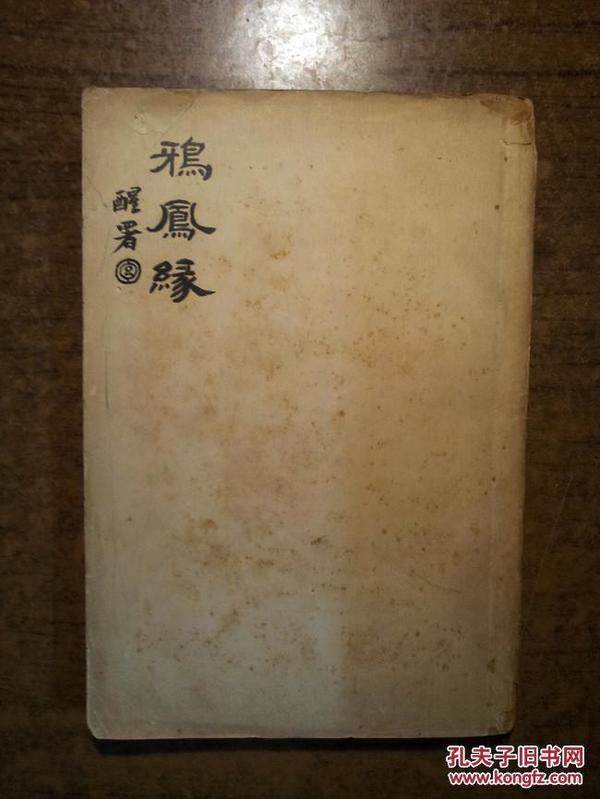 鴉鳳緣
醒署
孔夫子旧书网
www.kongfz.com